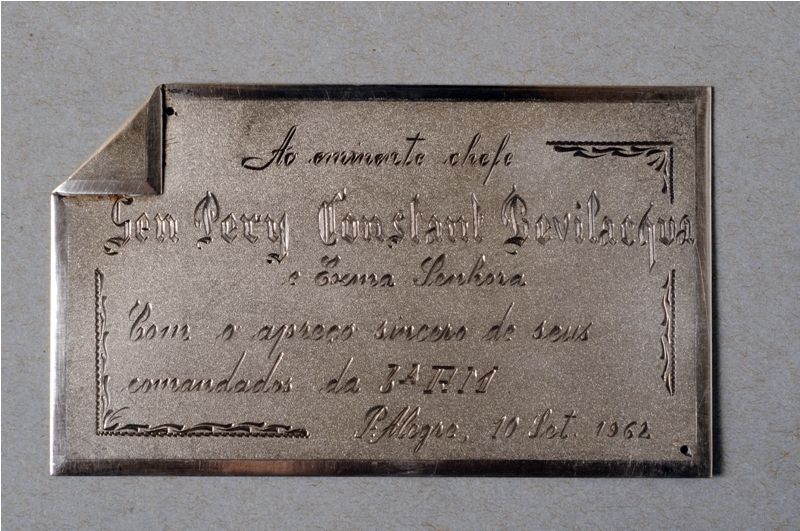 Ao eminente chefe
Gen Pery Constant Bevilacqua
e Exma Senhora
Com o apreço sincero de seus
comandados da 3ª RM
P. Alegre, 10 Set. 1962